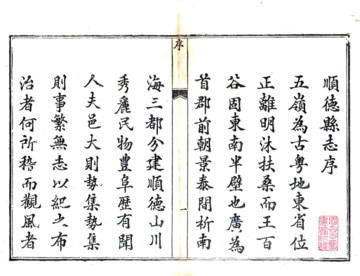 順德縣志序
五嶺為古粵地東省位
正離明沐扶桑而王百
谷固東南半壁也廣為
首郡前朝景泰間析南
序
一
海三都分建順德山川
秀麗民物豐阜歷有聞
人夫邑大則勢集勢集
則事繁無志以紀之布
治者何所稽而觀風者